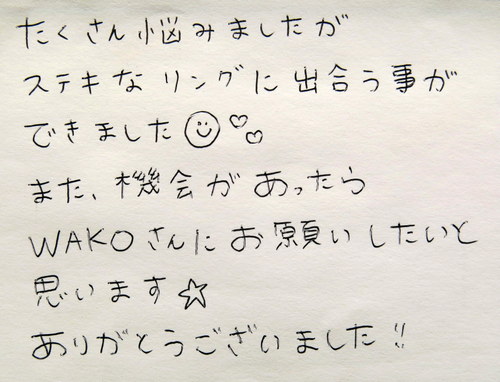 たくさん悩みましたが
ステキなリングに出合う事が
できました☺♡♡
また、機会があったら
WAKOさんにお願いしたいと
思います☆
ありがとうございました!!